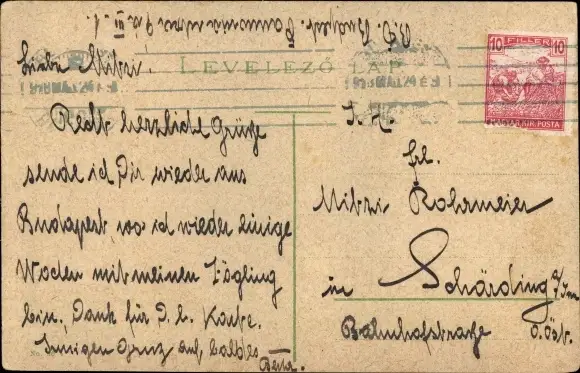 LEVELEZŐ LAP
10 FILLER 10
MAGYAR KIR. POSTA
Liebe Mitzi.
Recht herzliche Grüße
sende ich Dir wieder aus
Budapest, wo ich wieder einige
Wochen mit meinen Zögling
bin. Dank für D. l. Karte.
Innigen Gruß auf baldes
Berta.
Frl.
Mitzi Rohrmeier
in Schärding a/Inn
Bahnhofstraße O.Öst.
Budapest. Pannonia